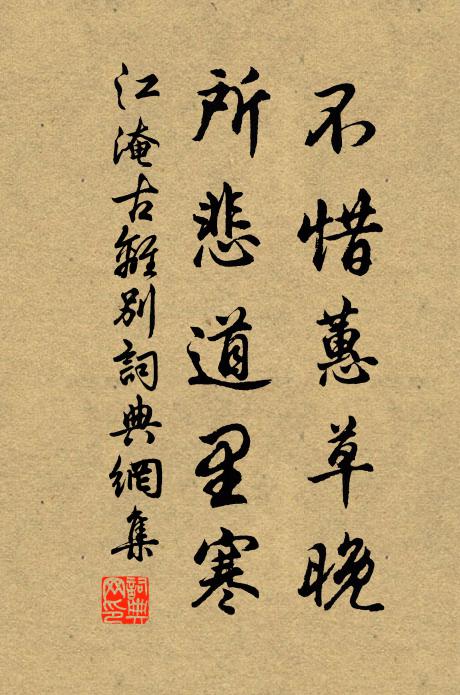 不惜蕙草晚
所悲道里寒
江淹古離別詞典網集
詞典
网印